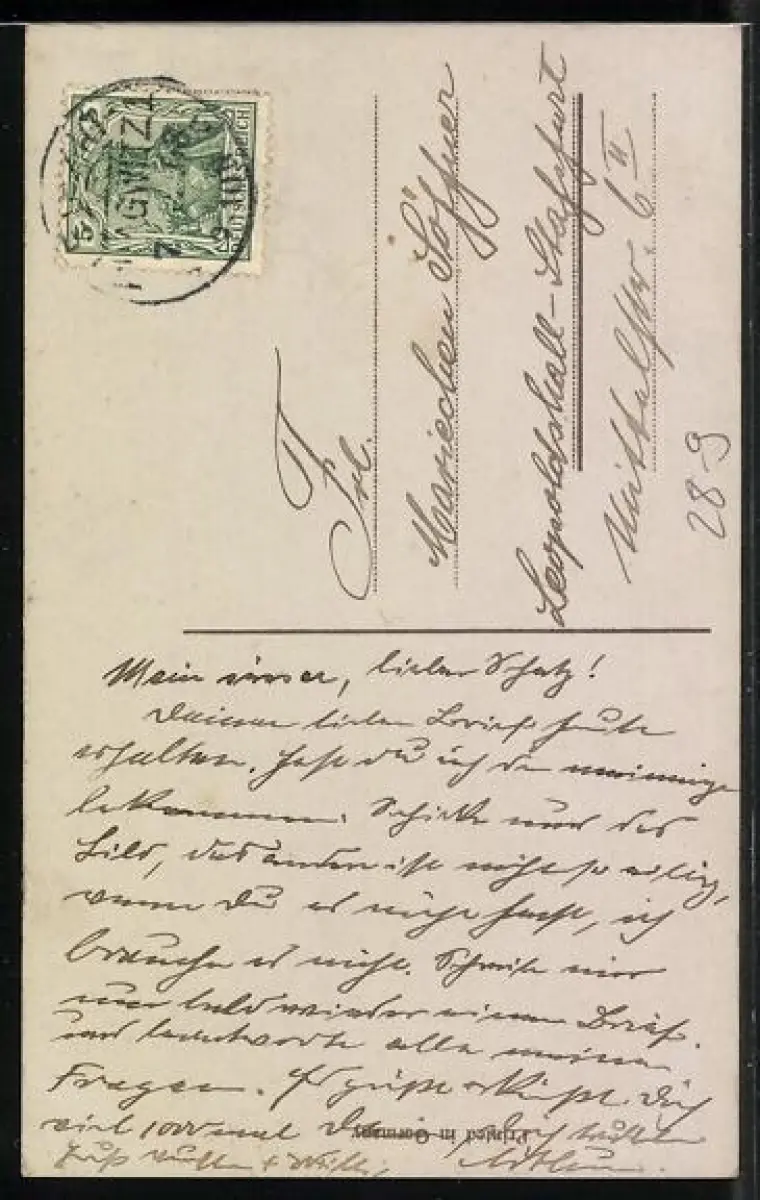 DEUTSCHES REICH
5
5
GWITZ
Frl.
Mariechen Töffner
Leopoldshall-Stassfurt
Mittelstr. 6 II
28.9
Mein lieber Schatz!
Deinen lieben Brief heute
erhalten. Hast du
bekommen. Schicke mir das
Bild, das andere ist nicht so eilig,
wenn Du es nicht hast, ich
brauche es nicht. Schreibe mir
nur bald wieder einen Brief
und beantworte alle meine
Fragen. Es grüßt & küßt Dich
viel 1000 mal Dein Dich
Gruß & Willi
Printed in Germany